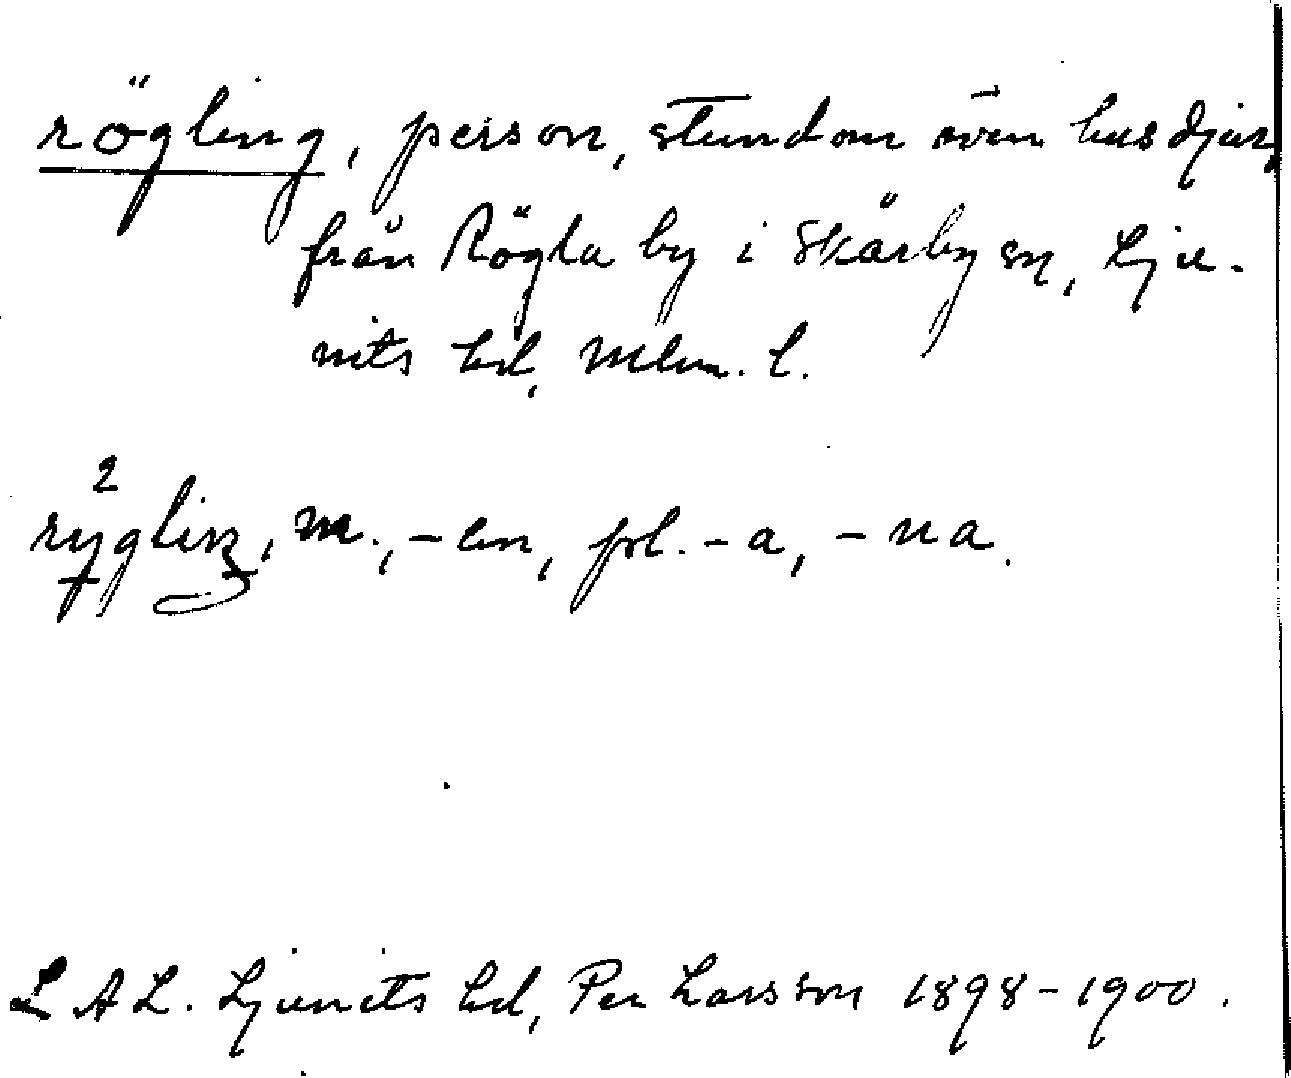 rögling, person, stundom även husdjur,
från Rögla by i Skårby sn, Lju-
nits hd, Mlm. l.
2
rygling, m., -en, pl. -a, -na.
LAL. Ljunits hd, Per Larsson 1898-1900.